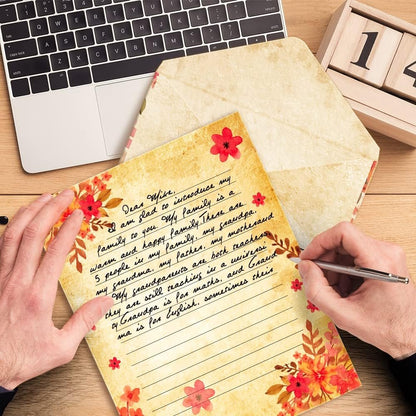 Dear Mike,
I am glad to introduce my
family to you. My family is a
warm and happy family. There are
5 people in my family, my grandpa,
my grandma, my father, my mother and
My grandparents are both teachers
they are still teaching in a universi-
ty. Grandpa is for maths, and Grand
ma is for English, sometimes their
1